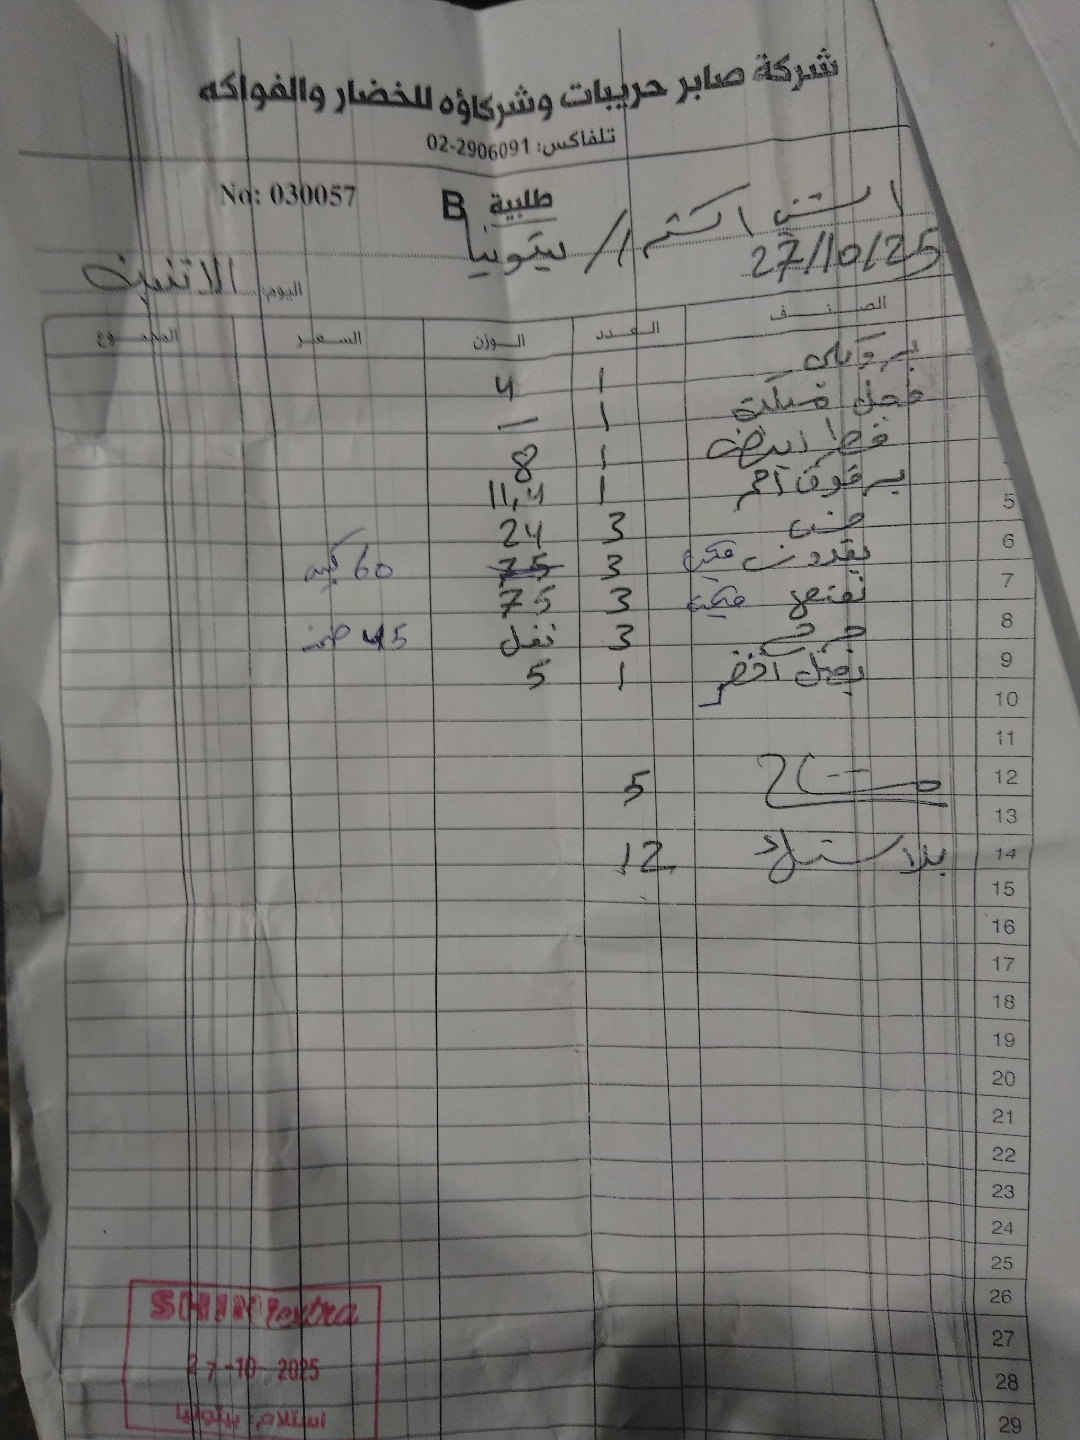 شركة صابر حريبات وشركاؤه للخضار والفواكه
تلفاكس: 02-2906091
No: 030057
طلبية B
اكسترا / بيتونيا
27/10/25
اليوم: الاثنين
الصنف العدد الوزن السعر المجموع
بروكلي 1 4
فجل 1 —
فطر ابيض 1 8
برقوق احمر 1 11,4
خس 3 24 5
بقدونس 3 75 60 6
نعنع 3 75 7
جرجير 3 نفل 45 8
بصل اخضر 1 5 9
10
11
5 12
13
بلاستيك 12 14
15
16
17
18
19
20
21
22
23
24
25
26
27
28
29
SHINI extra
27-10-2025
استلام: بيتونيا